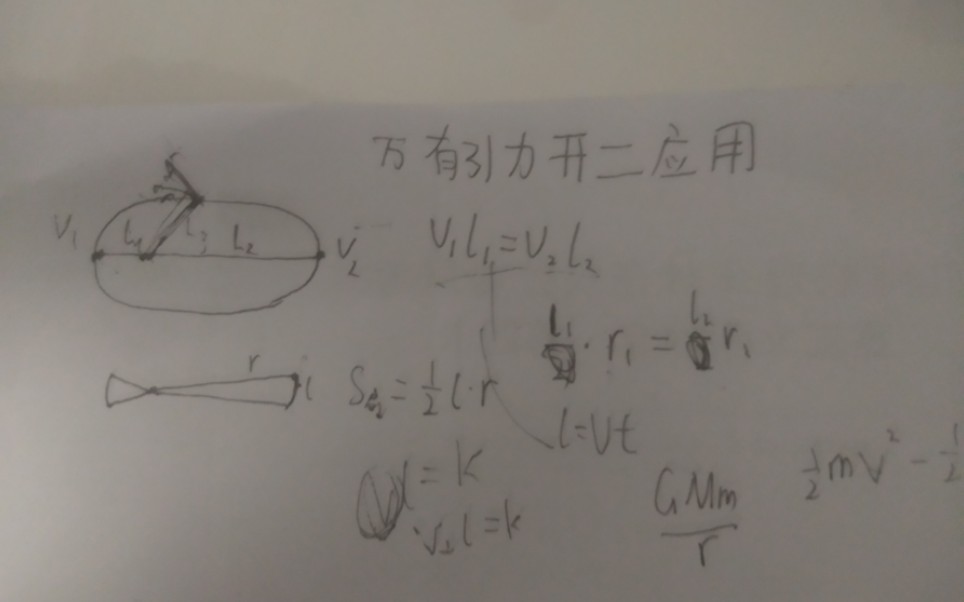 万有引力开二应用
V₁ L₁ L₃ L₂ V₂
V₁l₁=V₂l₂
l₁ · r₁ = l₂ r₁
r l S = 1/2 l·r
l=Vt
l=k
V⊥l=k
GMm/r
1/2 mV² - 1/2